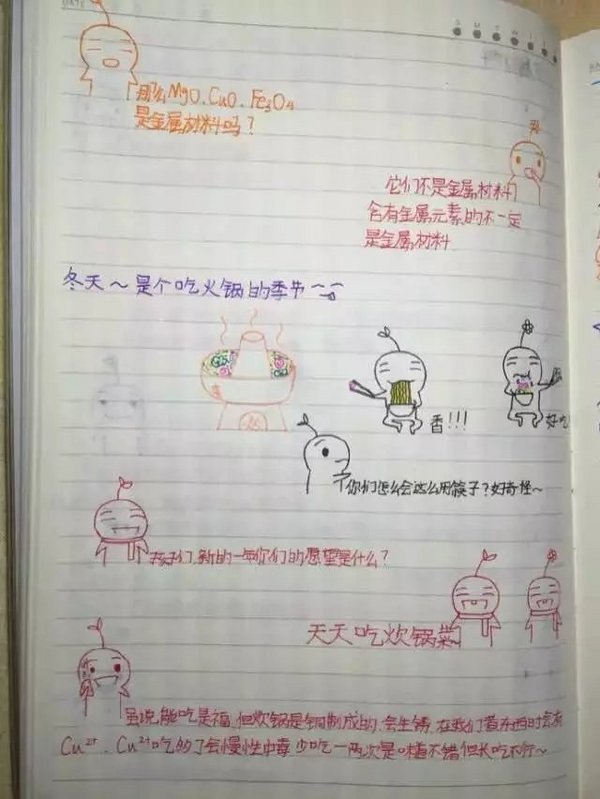 DATE
S M T W T F S
那么MgO、CuO、Fe3O4
是金属材料吗?
它们不是金属材料
含有金属元素的不一定
是金属材料
冬天~是个吃火锅的季节~~
香!!!
好吃
你们怎么会这么用筷子?好奇怪~
孩子们,新的一年你们的愿望是什么?
天天吃炊锅菜
虽说能吃是福,但炊锅是铜制成的,会生锈,在我们煮东西时会有
Cu²⁺、Cu²⁺吃的了会慢性中毒 少吃一两次是味道不错但长吃不行~